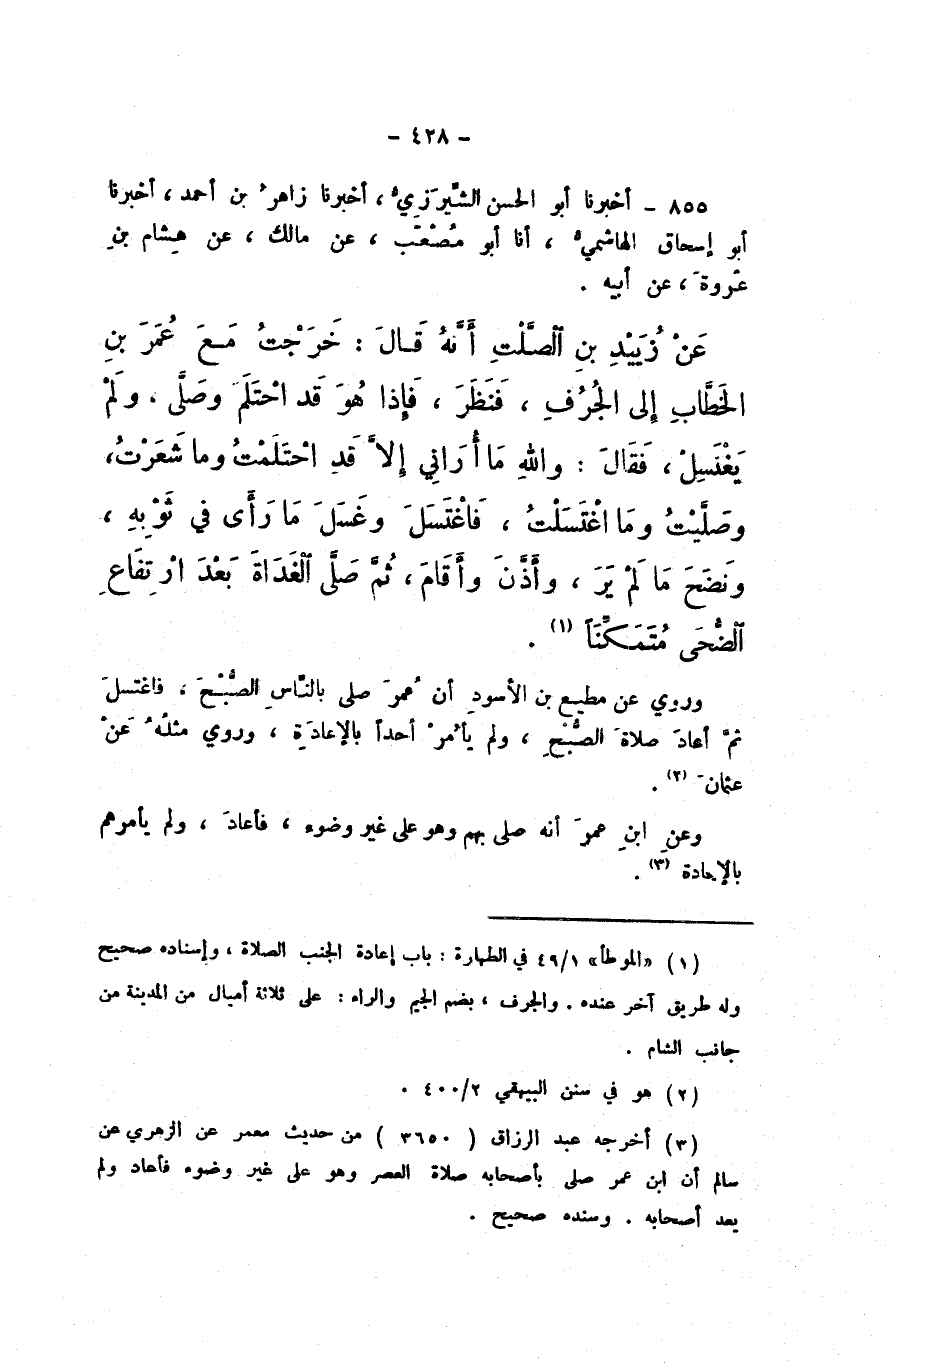 - ٤٢٨ -
٨٥٥ - أخبرنا أبو الحسن الشِّيرَزِيُّ ، أخبرنا زاهرُ بن أحمد ، أخبرنا
أبو إسحاق الهاشميُّ ، أنا أبو مُصْعَبٍ ، عن مالك ، عن هِشام بنِ
عُروةَ ، عن أبيه .
عَنْ زُيَيْدِ بنِ ٱلصَّلْتِ أَنَّهُ قَالَ : خَرَجْتُ مَعَ عُمَرَ بنِ
الخَطَّابِ إلى الجُرُفِ ، فَنَظَرَ ، فَإِذا هُوَ قَد احْتَلَمَ وَصَلَّى . وَلَمْ
يَغْتَسِلْ ، فَقَالَ : واللهِ مَا أُرَاني إلاَّ قَدِ احْتَلَمْتُ وما شَعَرْتُ ،
وصَلَّيْتُ ومَا اغْتَسَلْتُ ، فَاغْتَسَلَ وغَسَلَ مَا رَأَى في ثَوْبِهِ ،
ونَضَحَ مَا لَمْ يَرَ ، وأَذَّنَ وأَقَامَ ، ثُمَّ صَلَّى ٱلغَدَاةَ بَعْدَ ارْتِفَاعِ
ٱلضُّحَى مُتَمَكِّنَاً (١) .
وروي عن مطيع بن الأسودِ أن عُمرَ صلى بالنَّاسِ الصُّبْحَ ، فاغتسلَ
ثمَّ أعادَ صلاةَ الصُّبْحِ ، ولم يأمُرْ أحداً بالإعادَةِ ، وروي مثلُهُ عَنْ
عثمانَ (٢) .
وعنِ ابنِ عمرَ أنه صلى بهم وهو على غير وضوء ، فأعادَ ، ولم يأمرهم
بالإعادة (٣) .
(١) «الموطأ» ٤٩/١ في الطهارة : باب إعادة الجنب الصلاة ، وإسناده صحيح
وله طريق آخر عنده . والجرف ، بضم الجيم والراء : على ثلاثة أميال من المدينة من
جانب الشام .
(٢) هو في سنن البيهقي ٤٠٠/٢ .
(٣) أخرجه عبد الرزاق ( ٣٦٥٠ ) من حديث معمر عن الزهري عن
سالم أن ابن عمر صلى بأصحابه صلاة العصر وهو على غير وضوء فأعاد ولم
يعد أصحابه . وسنده صحيح .